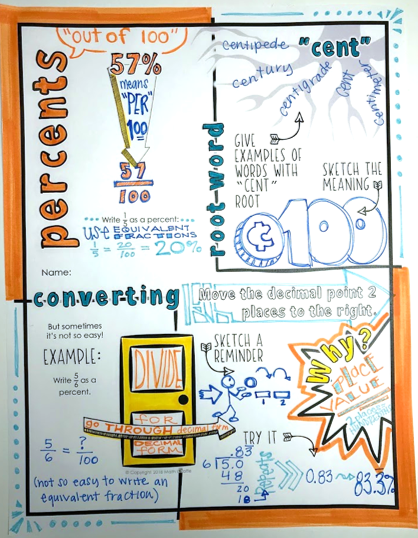 percents
"out of 100"
57%
means
"PER"
100
57
100
Write 1/5 as a percent:
USE EQUIVALENT
FRACTIONS
1/5 = 20/100 = 20%
Name:
root-word
"cent"
centipede
century
centigrade
cent
centimeter
GIVE
EXAMPLES OF
WORDS WITH
"CENT"
ROOT
SKETCH THE
MEANING
¢100
converting
Move the decimal point 2
places to the right.
But sometimes
it's not so easy!
EXAMPLE:
Write 5/6 as a
percent.
5/6 = ?/100
(not so easy to write an
equivalent fraction)
DIVIDE
FOR
go THROUGH decimal form
DECIMAL
FORM
SKETCH A
REMINDER
Why?
PLACE
VALUE
TRY IT
.83
6 5.0
48
20
18
repeats
0.83
83.3%